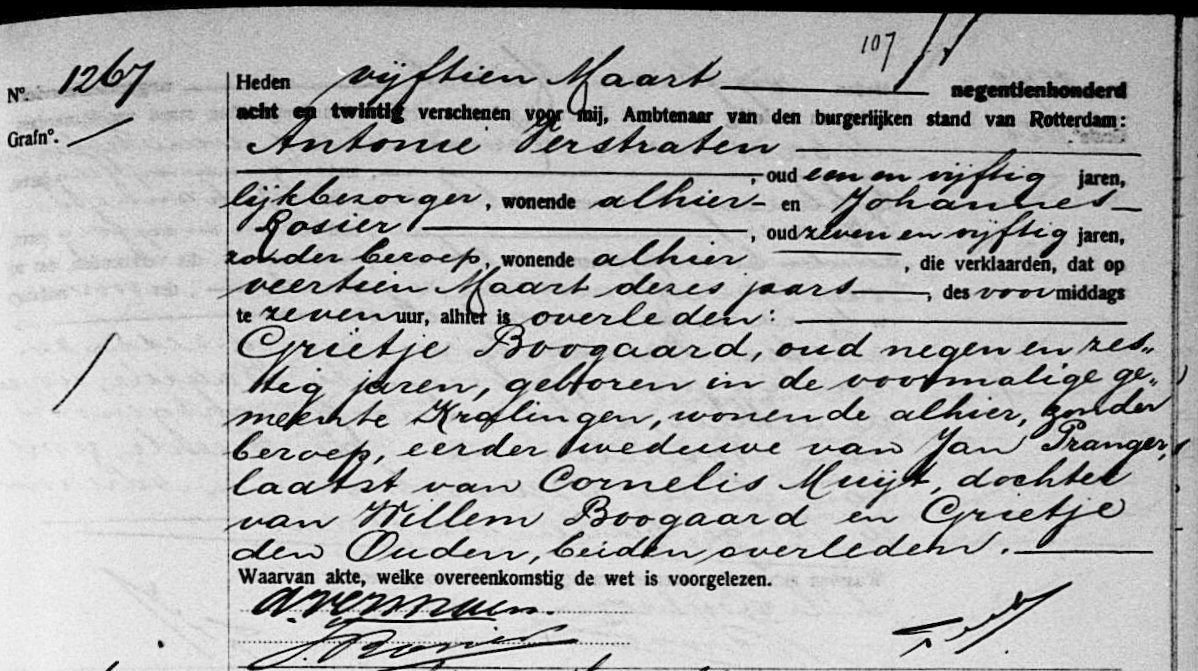 107
N° 1267
Grafn°.
Heden vijftien Maart negentienhonderd
acht en twintig verschenen voor mij, Ambtenaar van den burgerlijken stand van Rotterdam:
Antonie Verstraten
, oud een en vijftig jaren,
lijkbezorger, wonende alhier en Johannes
Rosier, oud zeven en vijftig jaren,
zonder beroep, wonende alhier, die verklaarden, dat op
veertien Maart dezes jaars, des voormiddags
te zeven uur, alhier is overleden:
Grietje Boogaard, oud negen en zes„
tig jaren, geboren in de voormalige ge„
meente Kralingen, wonende alhier, zonder
beroep, eerder weduwe van Jan Pranger,
laatst van Cornelis Muijt, dochter
van Willem Boogaard en Grietje
den Ouden, beiden overleden.
Waarvan akte, welke overeenkomstig de wet is voorgelezen.